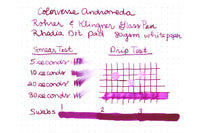 Colorverse Andromeda
Rohrer & Klingner Glass Pen
Rhodia Dot Pad 80gsm white paper
Smear Test
Drip Test
5 seconds
10 seconds
20 seconds
30 seconds
Swabs 1 2 3